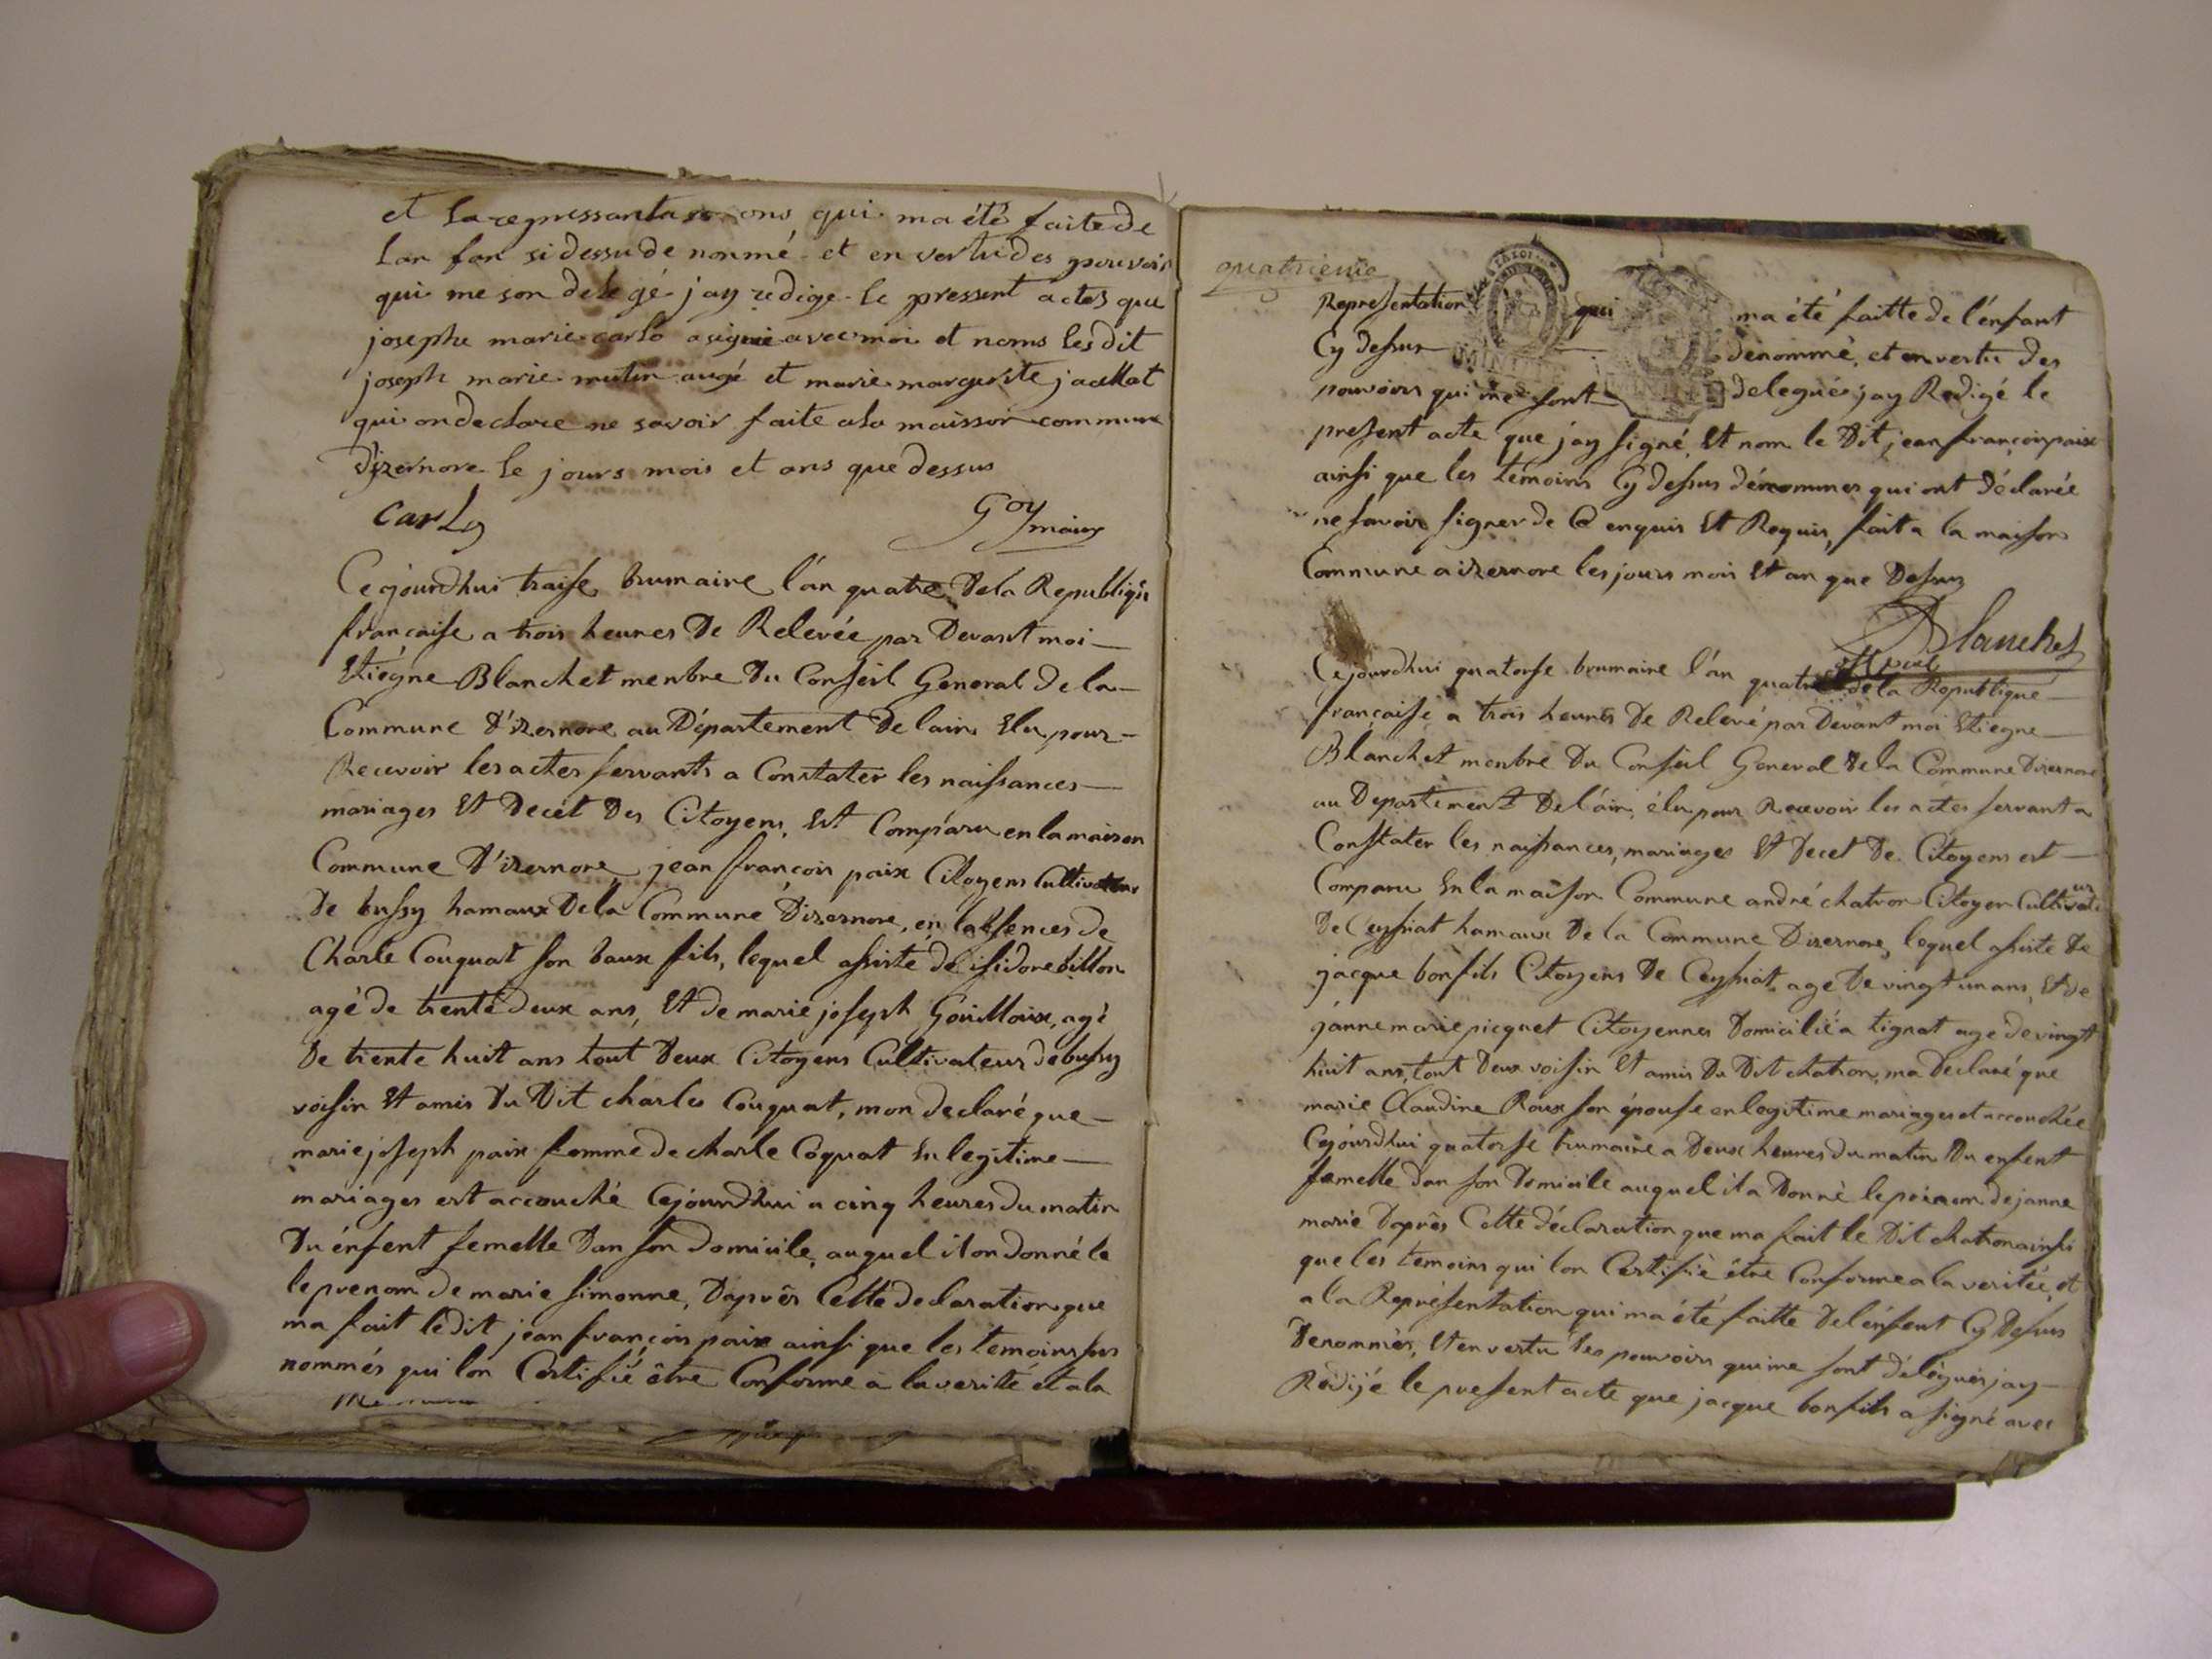 et la repressantasions qui ma été faite de
lan fan si dessu de nonmé et en vertu des pouvoir
qui me son delegé j ay redige le pressent actes que
josephe marie carlo a signie avec moi et noms les dit
joseph marie mutin augé et marie margerite jacellat
qui on declare ne savoir faite a la maisson commune
d'izernore le jours mois et ans que dessus
Carlo Goy maire
Cejourdhui traise brumaire l'an quatre De la Republique
française a trois heures De Relevée par Devant moi
Etiegne Blanchet menbre Du Conseil General de la
Commune D'izernore au Département De lain Elu pour
Recevoir les actes servants a Constater les naissances
mariages Et Decét Des Citoyens, Est Comparu en la maison
Commune D'izernore, jean françois paix Citoyens Cultivateur
De bussy hamaux De la Commune Dizernore, en labsences de
Charle Couquat son baux fils, lequel assisté de isidore billon
agé de trente deux ans, Et de marie joseph Gouilloux, agé
De trente huit ans tout Deux Citoyens Cultivateurs de bussy
voisin Et amis Du Dit charles Couquat, mon declaré que
marie joseph paix femme de charle Coquat En legitime
mariages est accouché Cejourdhui a cinq heures du matin
Du énfent femelle Dan son domicile, auquel il on donné le
le prenom de marie simonne, Daprês Cette declaration que
ma fait ledit jean françois paix ainsi que les temoins sus
nommés qui lon Certifié être Conforme a la verité et a la
quatrieme
Representation qui ma été faitte de l'énfant
Cy dessus denommé, et en vertu des
pouvoirs qui me sont delegués jay Redigé le
present acte que jay signé, Et nom le Dit jean françois paix
ainsi que les témoins Cy dessus dénommes qui ont déclarée
ne savoir signer de Ce enquis Et Requis, fait a la maison
Commune a izernore les jours mois Et an que Dessus
Blanchet
Cejourdhui quatorse brumaire l'án quatre de la Republique
française a trois heures De Relevé par Devant moi Etiegne
Blanchet menbre Du Conseil General De la Commune Dizernore
au Departement De l'áin, élu pour Recevoir les actes servant a
Constater les naissances, mariages Et Decet De Citoyens est
Comparu En la maison Commune andré chatron Citoyen Cultivateur
De Ceyssiat hamaux De la Commune Dizernore, lequel assisté De
jacque bonfils Citoyens De Ceyssiat agé De vingt un ans, Et de
janne marie picquet Citoyennes Domicilié a tignat age de vingt
huit ans, tout Deux voisin Et amis Du Dit chatron, ma Declaré que
marie Claudine Roux son épouse en legitime mariages et accouchée
Cejourdhui quatorse brumaire a Deux heures du matin Du enfent
femelle dan son Domicile auquel il a Donné le prenom de janne
marie Daprês Cette déclaration que ma fait le Dit chatron ainsi
que les temoins qui lon Certifié être Conforme a la veritée, et
a la Représentation qui ma été faitte De lénfent Cy Dessus
Denommés, Et en vertu Des pouvoirs qui me sont délégués jay
Redijé le present acte que jacque bonfils a signé avec